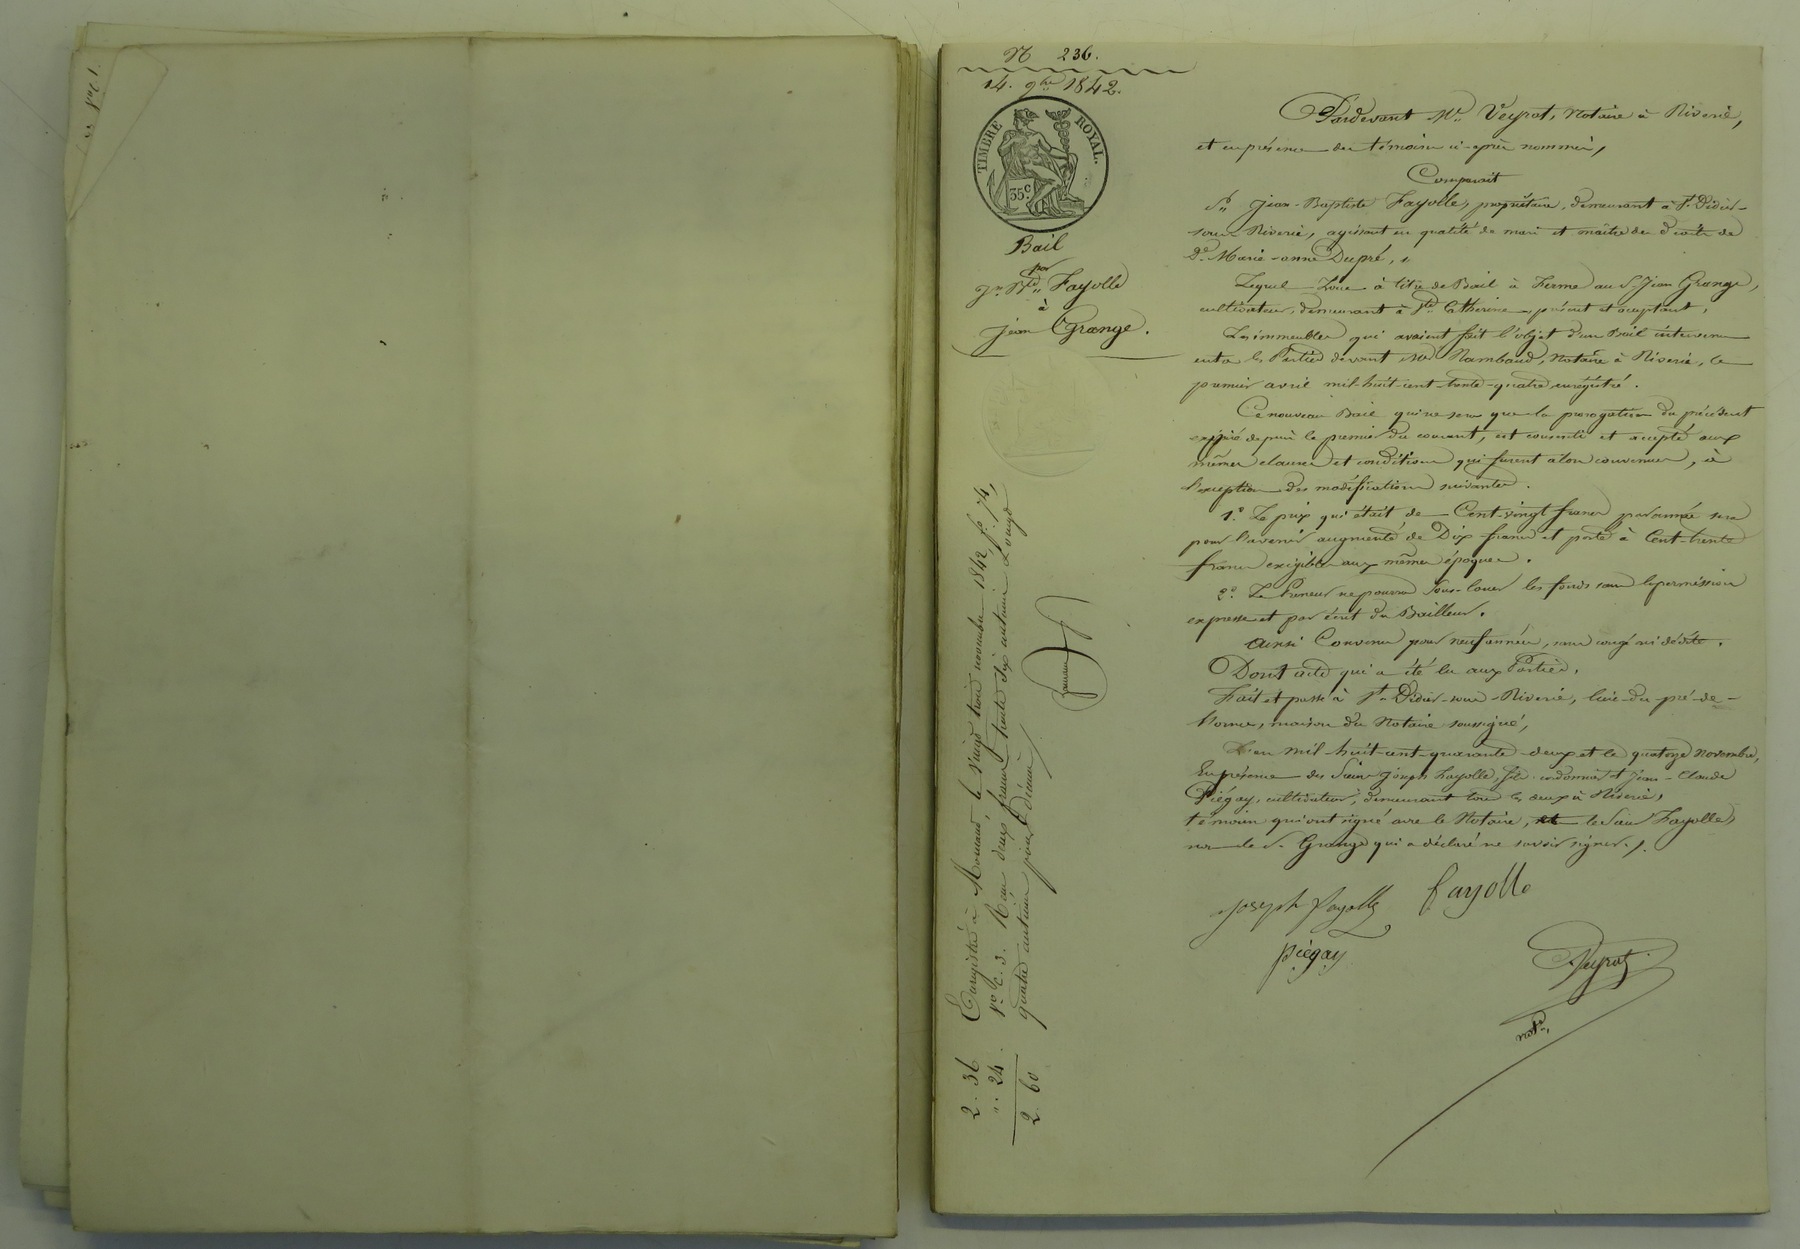 N 236.
14. 9bre 1842.
TIMBRE ROYAL.
35 c
Bail
par
Jn Bte Fayolle
à
Jean Grange.
Pardevant Me Veyrat, Notaire à Riverie,
et en présence des témoins ci-après nommés,
Comparait
Sr Jean-Baptiste Fayolle, propriétaire, demeurant à St Didier-
sous-Riverie, agissant en qualité de mari et maître des droits de
De Marie-anne Dupré,
Lequel Loue à titre de Bail à Ferme au Sr Jean Grange,
cultivateur, demeurant à Ste Catherine, présent et acceptant,
Les immeubles qui avaient fait l'objet d'un Bail intervenu
entre les Parties devant Me Rambaud, Notaire à Riverie, le
premier avril mil-huit-cent-trente-quatre, enregistré.
Ce nouveau Bail qui ne sera que la prorogation du précédent
expiré depuis le premier du courant, est consenti et accepté aux
mêmes clauses et conditions qui furent alors convenues, à
l'exception des modifications suivantes.
1.° Le prix qui était de Cent-vingt francs par année sera
pour l'avenir augmenté de Dix francs et porté à Cent-trente
francs exigibles aux mêmes époques.
2.° Le Preneur ne pourra Sous-louer les fonds sans la permission
expresse et par écrit du Bailleur.
Ainsi Convenu pour neuf années, sans congé ni dédite.
Dont acte qui a été lu aux Parties.
Fait et passé à St Didier-sous-Riverie, lieu-du-pré-de-
l'orme, maison du Notaire soussigné,
L'an mil-huit-cent-quarante-deux et le quatorze Novembre,
En présence des Sieurs Joseph Fayolle, fils, cordonnier et Jean-Claude
Piégay, cultivateur, demeurant tous les deux à Riverie,
témoins qui ont signé avec le Notaire, et le Sieur Fayolle,
non le Sr Grange qui a déclaré ne savoir signer.
joseph fayolle
fayolle
piégay
Veyrat
notre
Enregistré à Mornant, le vingt trois novembre 1842, fo 74,
vo c. 3. Reçu deux francs trente six centimes Louage
quatre centimes pour décime
2. 36
". 24
2. 60